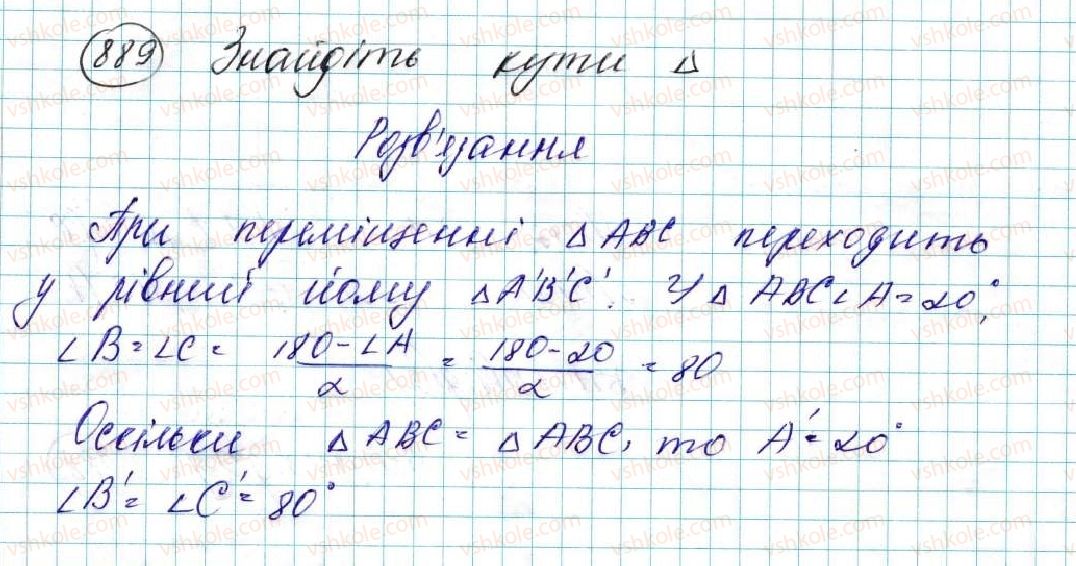 889 Знайдіть кути Δ
Розв'язання
При переміщенні Δ ABC переходить
у рівний йому Δ A'B'C'. У Δ ABC ∠A = 20°,
∠B = ∠C = (180 - ∠A)/2 = (180 - 20)/2 = 80
Оскільки Δ ABC = Δ ABC, то A' = 20°
∠B' = ∠C' = 80°